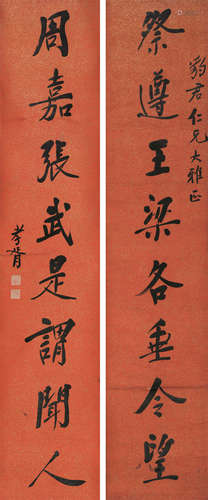 豹君仁兄大雅正
祭遵王梁各垂令望
周嘉張武是謂聞人
孝胥